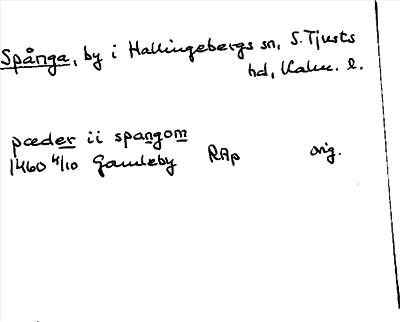 Spånga, by i Hallingebergs sn, S. Tjusts
hd, Kalm. l.
pæder ii spangom
1460 4/10 Gamleby RAp orig.